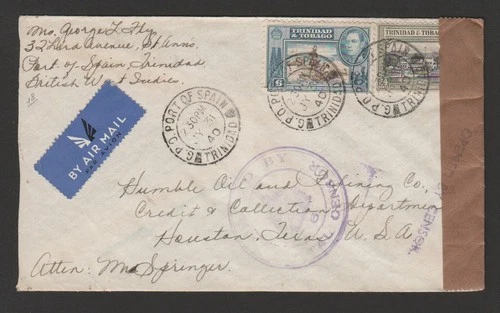 Mrs. George L. Fly
32 Third Avenue, St. Anns,
Port of Spain, Trinidad
British West Indies.
BY AIR MAIL
PAR AVION
TRINIDAD & TOBAGO
6
TRINIDAD & TOBAGO
G.P.O. PORT OF SPAIN
TRINIDAD
40
G.P.O. PORT OF SPAIN
TRINIDAD
40
TRINIDAD
40
BY
CENSOR
Humble Oil and Refining Co.,
Credit & Collection Department
Houston, Texas U.S.A.
Atten: Mr. Springer.